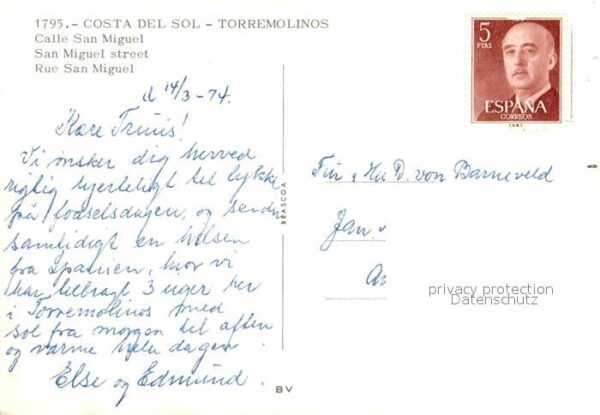 1795.- COSTA DEL SOL - TORREMOLINOS
Calle San Miguel
San Miguel street
Rue San Miguel
d 14/3-74.
Kære Truus!
Vi ønsker dig herved
rigtig hjerteligt til lykke
på fødselsdagen, og sender
samtidigt en hilsen
fra Spanien, hvor vi
har tilbragt 3 uger her
i Torremolinos med
sol fra morgen til aften
og varme hele dagen
Else og Edmund.
BRASCOA
BV
5
PTAS
ESPAÑA
CORREOS
D. von Barneveld
Jan
privacy protection
Datenschutz